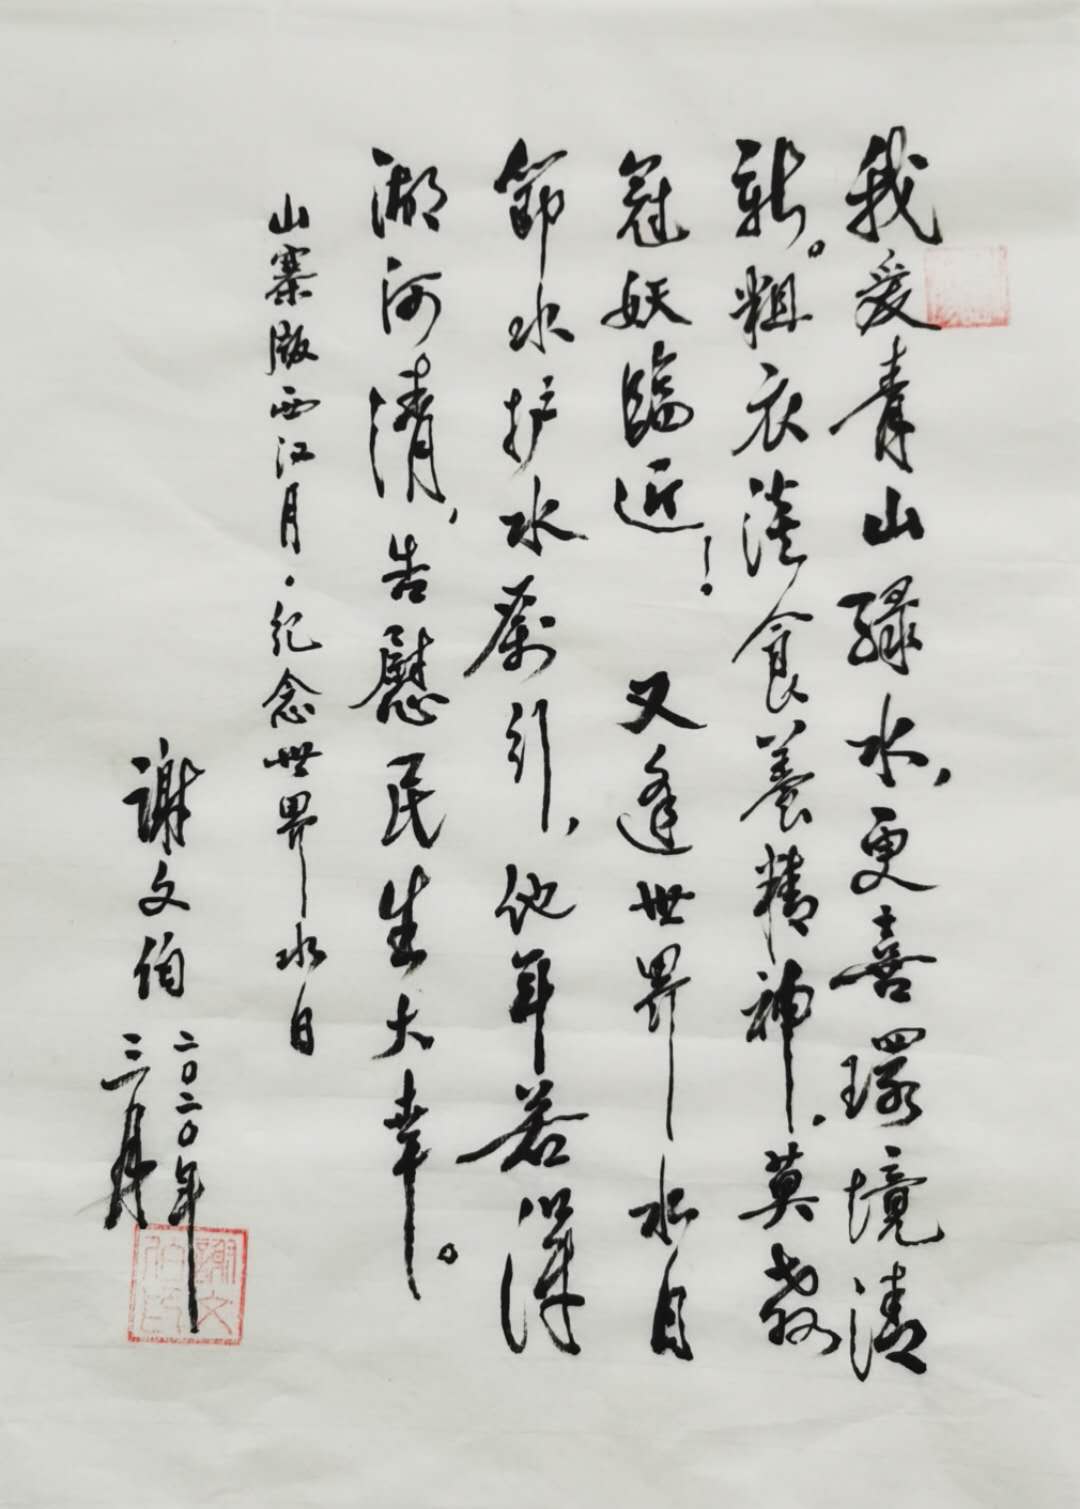 我爱青山绿水，更喜环境清
新。粗衣淡食养精神，莫教
冠妖临近！ 又逢世界水日
節水护水为引，他年若以洋
湖河清，告慰民生大幸。
山寨版西江月·纪念世界水日
謝文伯
二〇二〇年
三月
謝文伯印